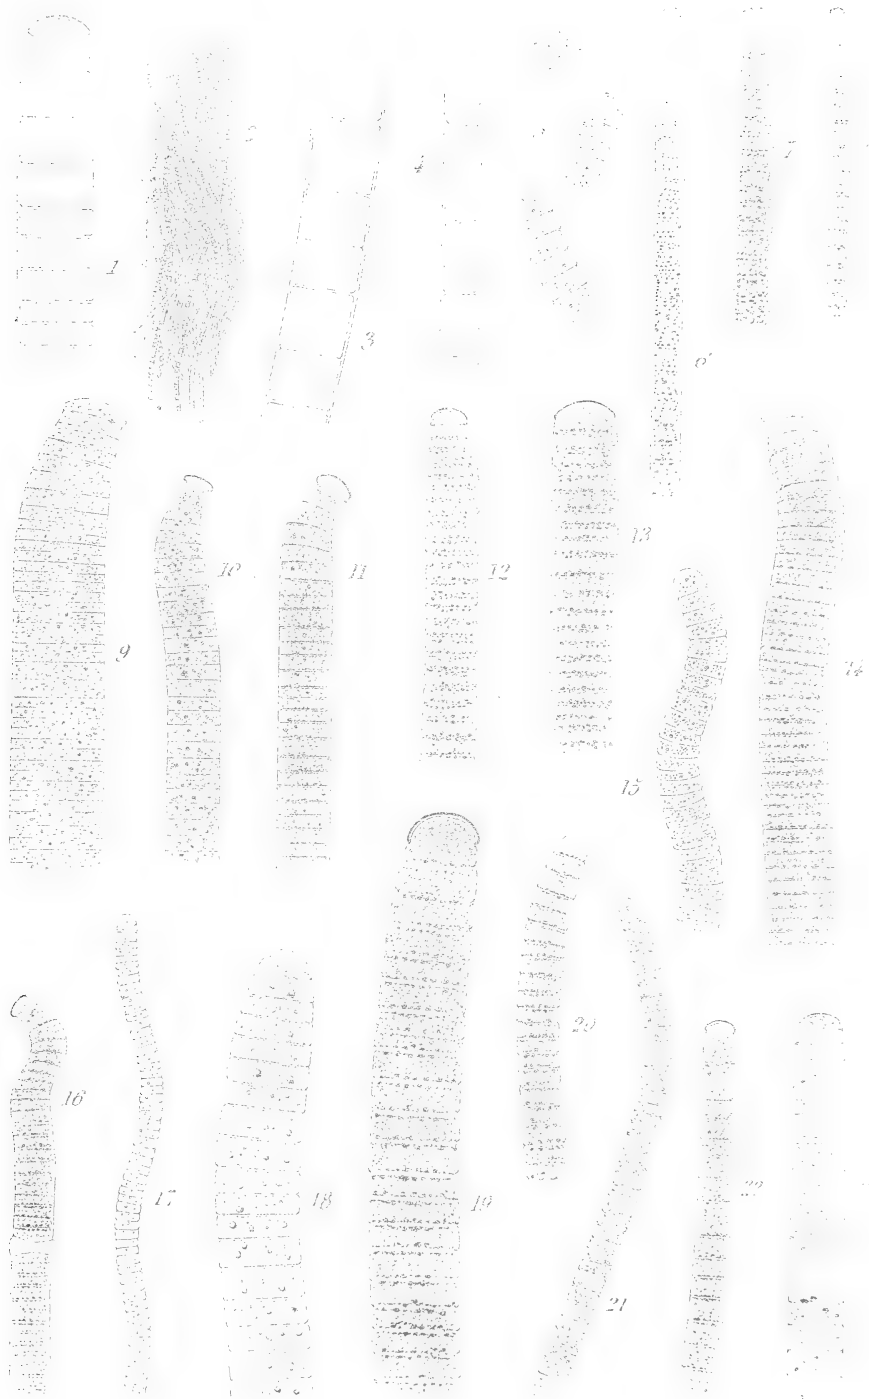 1
2
3
4
6
7
9
10
11
12
13
14
15
16
17
18
19
20
21
22